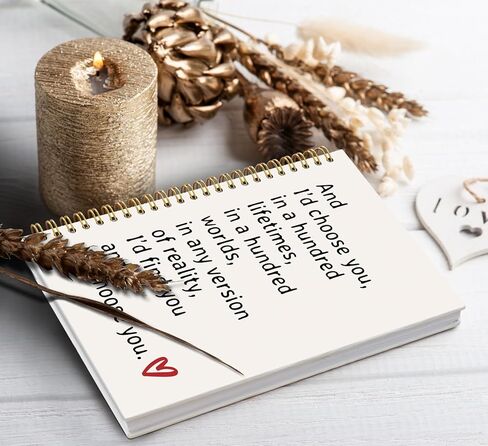 And
I'd choose you,
in a hundred
lifetimes,
in a hundred
worlds,
in any version
of reality,
I'd find you
and choose you.
LOV